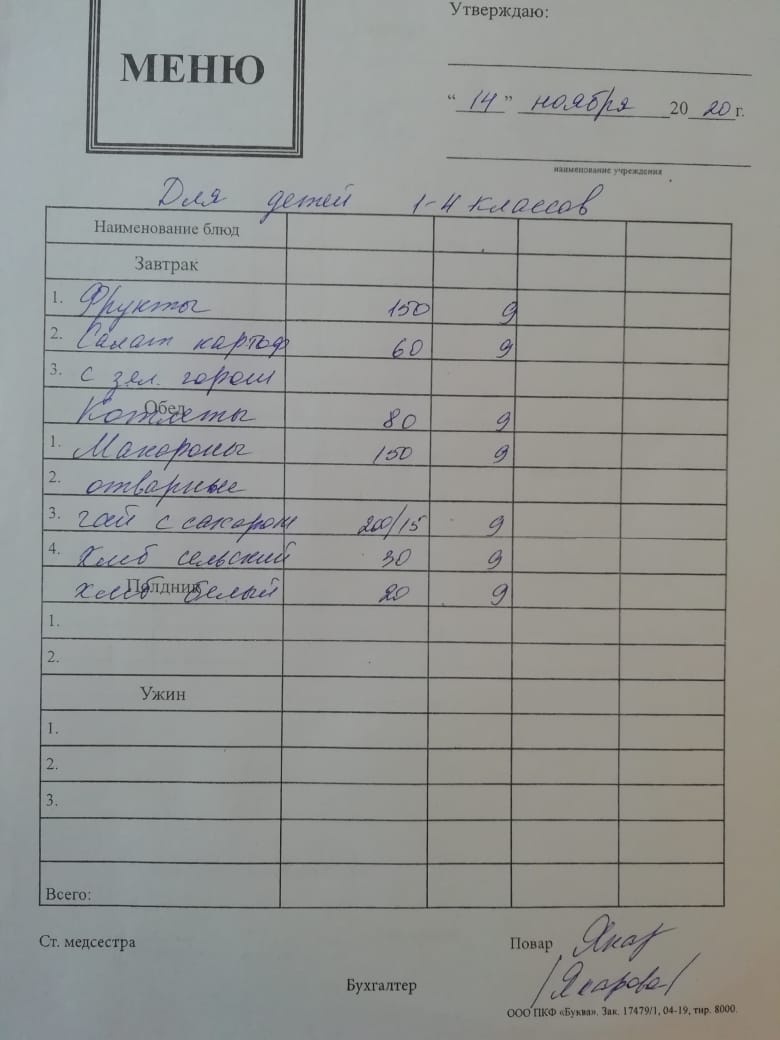 Утверждаю:
МЕНЮ
“ 14 ” ноября 20 20 г.
наименование учреждения
Для детей 1-4 классов
Наименование блюд
Завтрак
1. Фрукты 150 g
2. Салат картоф 60 g
3. с зел. горош
Обед
Котлеты 80 g
1. Макароны 150 g
2. отварные
3. чай с сахаром 200/15 g
4. Хлеб сельский 30 g
Полдник
хлеб белый 20 g
1.
2.
Ужин
1.
2.
3.
Всего:
Ст. медсестра
Повар
Бухгалтер
ООО ПКФ «Буква». Зак. 17479/1, 04-19, тир. 8000.